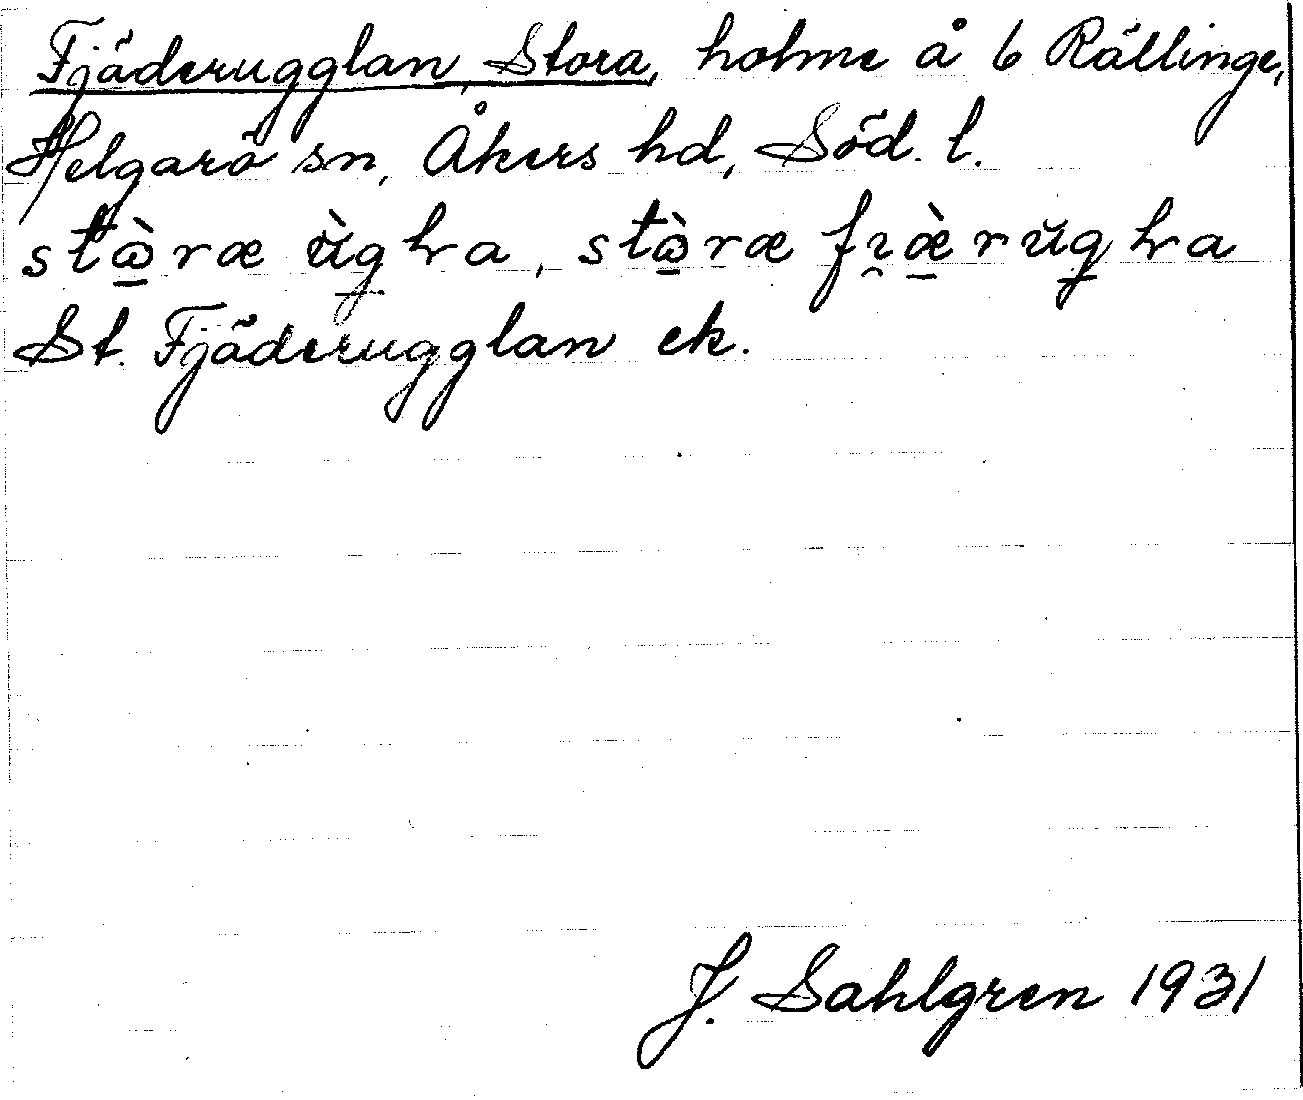 Fjäderugglan, Stora, holme å 6 Rällinge,
Helgarö sn, Åkers hd, Söd. l.
stɷ̠̀ræ ùg̠ɫa, stɷ̠̀ræ fı̯æ̠̀rŭg̠ɫa
St. Fjäderugglan ek.
J. Sahlgren 1931